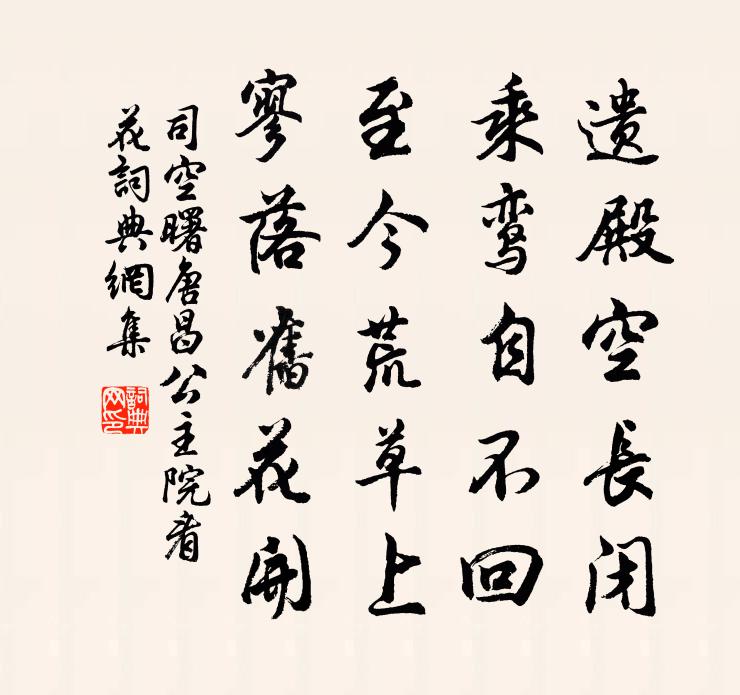 遗殿空長闭
乘鸾自不回
至今荒草上
寥落舊花開
司空曙唐昌公主院看
花詞典網集
詞典
网印